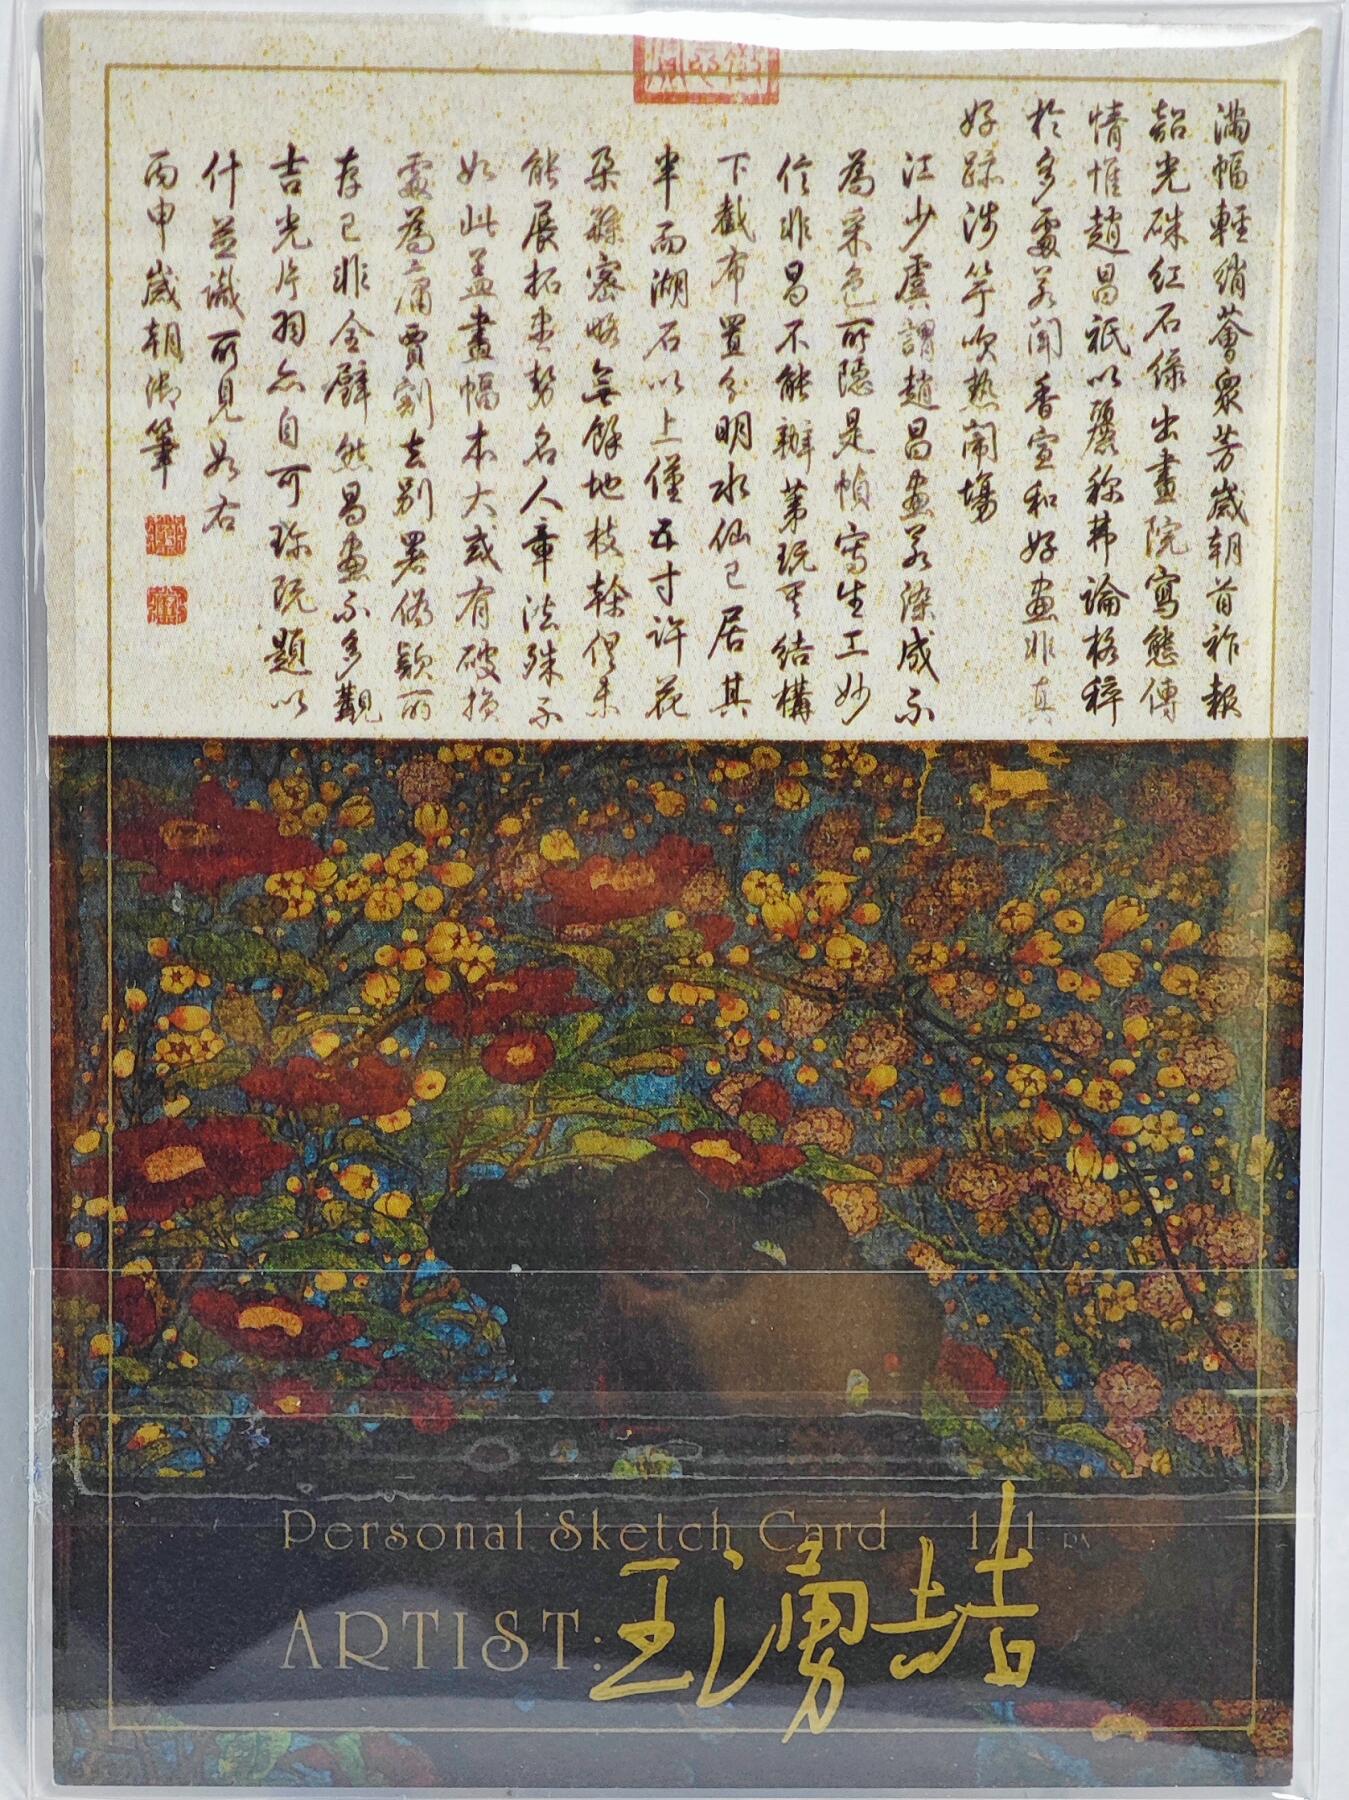 滿幅輕綃薈眾芳歲朝首祚報
韶光硃紅石綠出畫院寫態傳
情惟趙昌祇以麗稱弗論格稡
於多處若聞香宣和好畫非真
好跡涉竽吹熱鬧場
江少虞謂趙昌畫若染成不
為采色所隱是幀寫生工妙
信非昌不能辦第玩其結構
下截布置分明水仙已居其
半而湖石以上僅五寸許花
朵稠密略無餘地枝榦俱未
能展拓生勢名人章法殊不
如此盖畫幅本大或有破損
處為庸賈割去別署偽款所
存已非全璧然昌畫不多觀
吉光片羽亦自可珍既題以
什並識所見如右
丙申歲朝御筆
Personal Sketch Card 1/1
ARTIST: 王湧喆